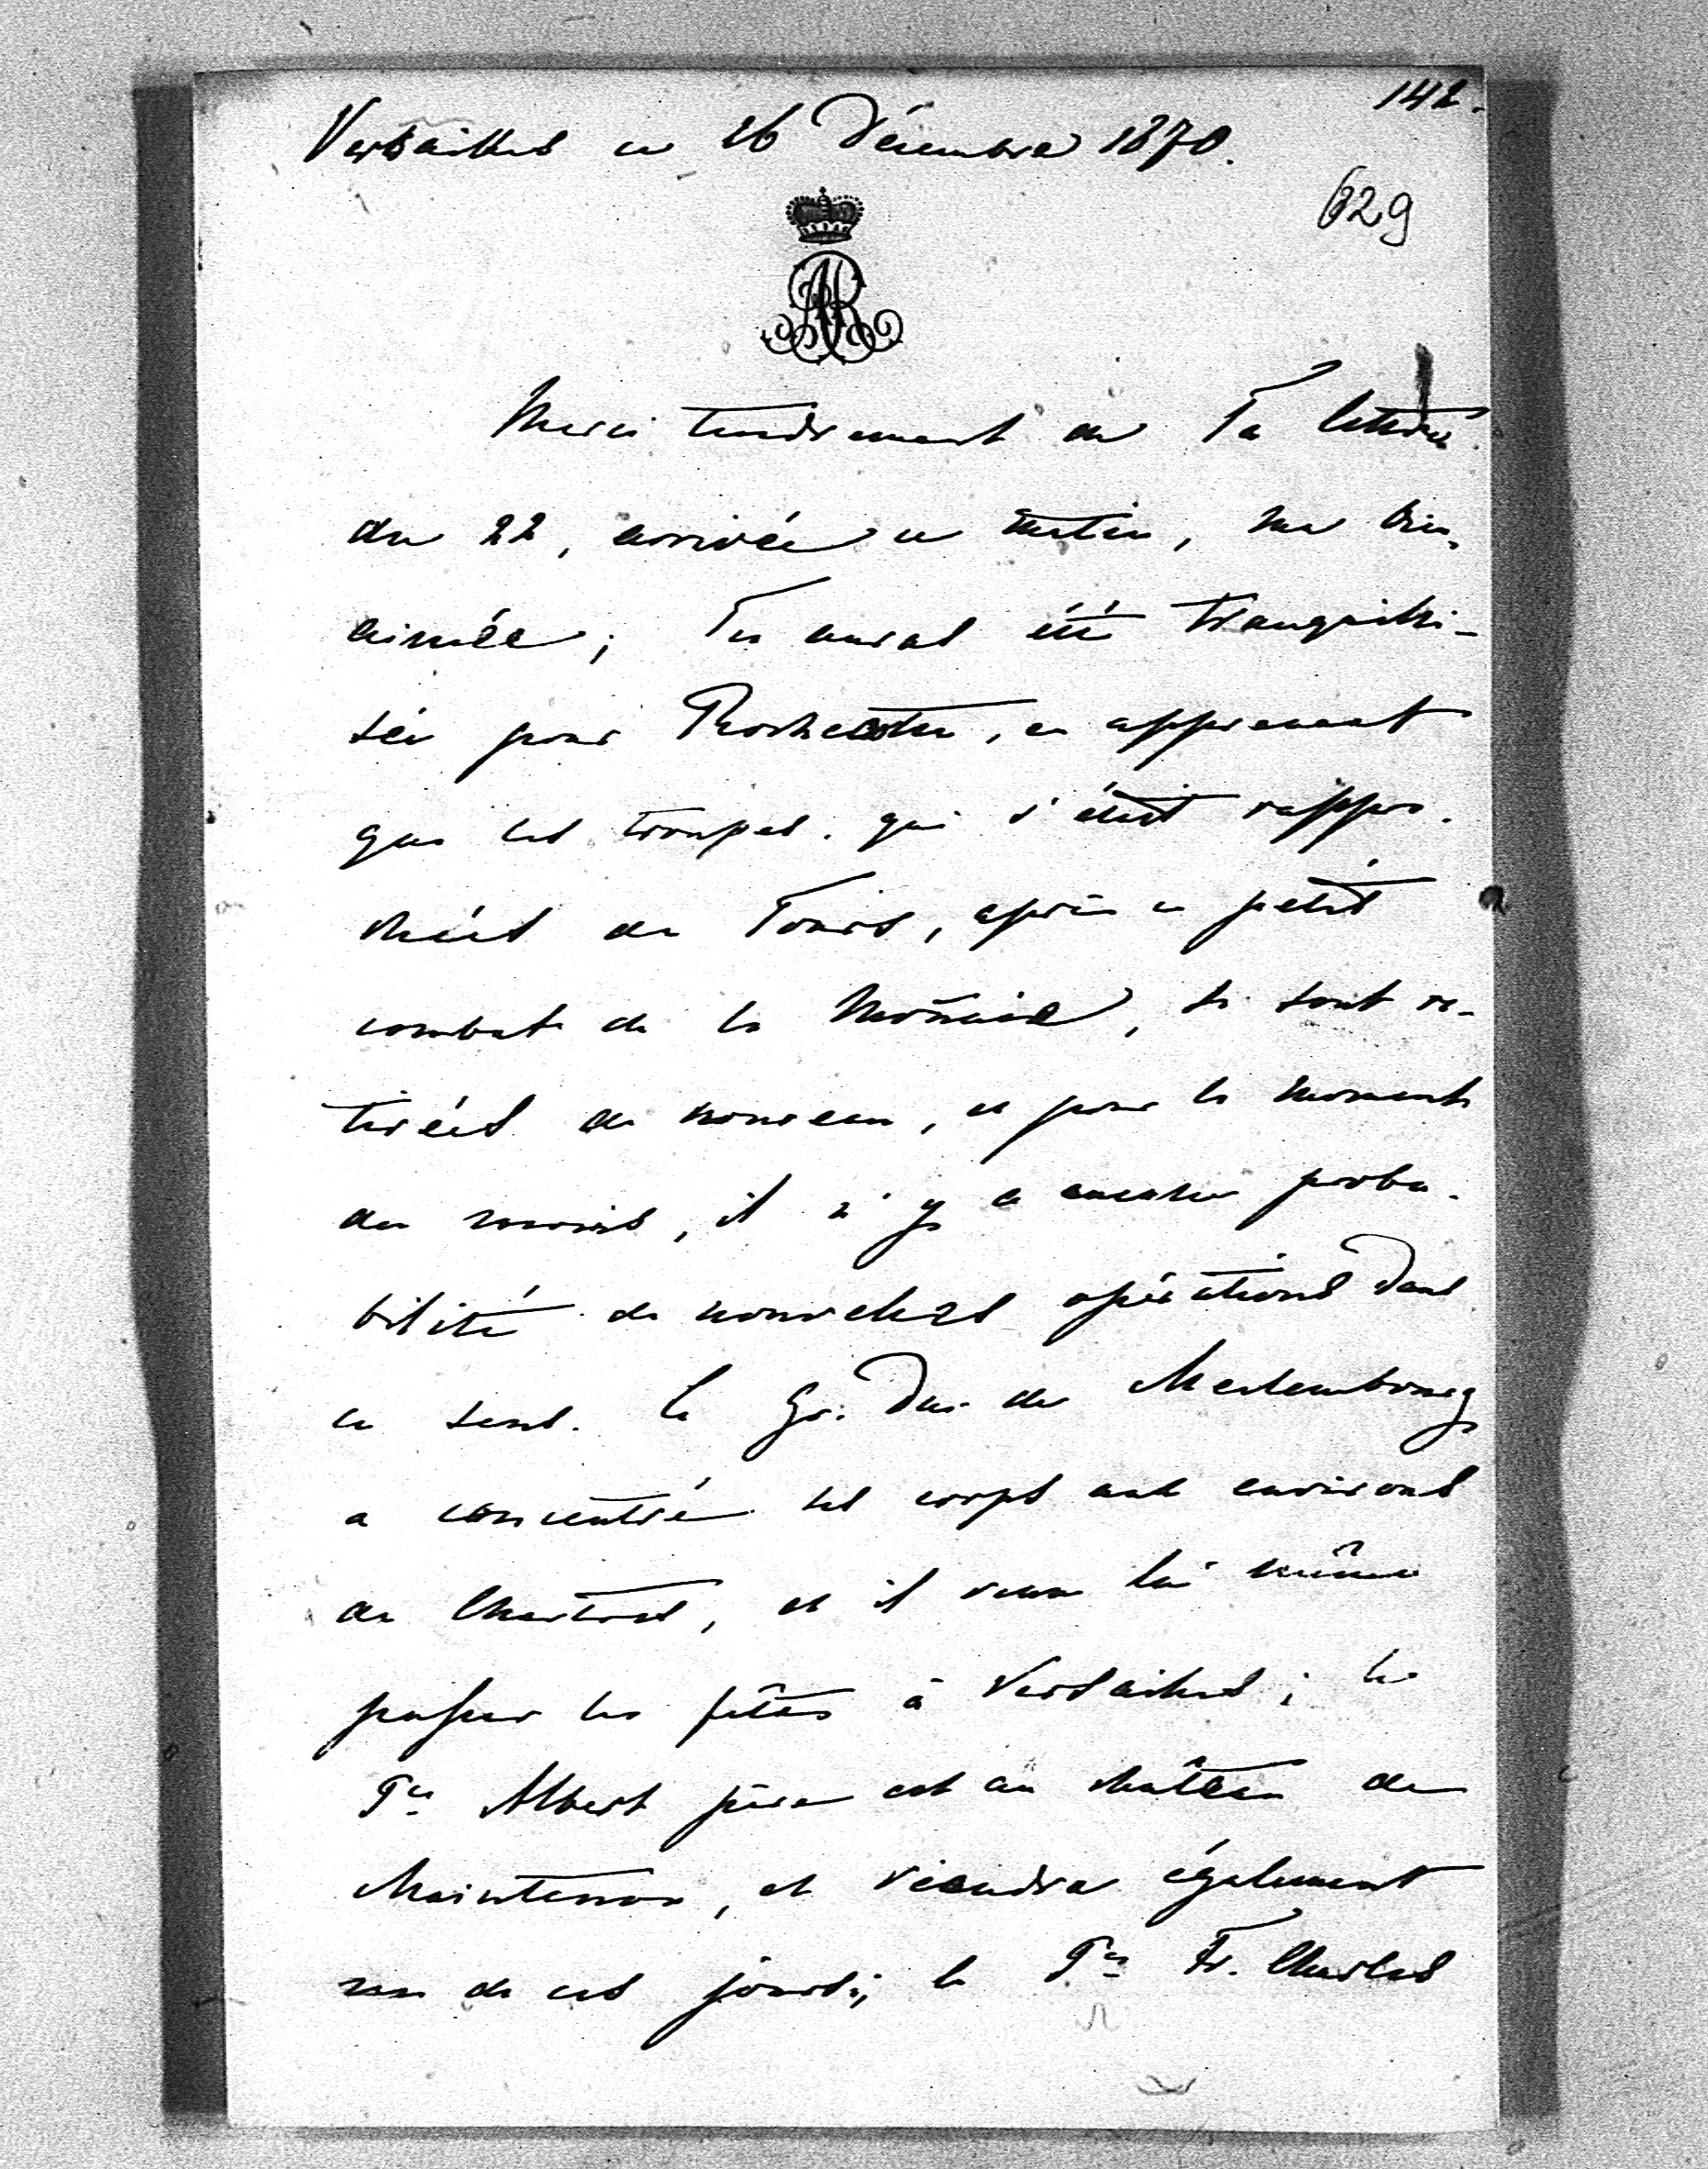 142.
Versailles ce 26 Décembre 1870.
629
AR
Merci tendrement de Ta lettre
du 22, arrivée ce matin, ma bien
aimée; Tu auras été tranquilli-
sée pour Rochecotte, en apprenant
que les troupes qui s'était rappro-
chées de Tours, après ce petit
combat de la Monnaie, se sont re-
tirées de nouveau, et pour le moment
du moins, il n'y a aucune proba-
bilité de nouvelles opérations dans
ce sens. Le Gr. Duc de Meclembourg
a concentré ses corps aux environs
de Chartres, et il veut lui même
passer les fêtes à Versailles; le
Pce Albert père est au château de
Maintenon, et viendra également
un de ces jours; le Pce Fr. Charles